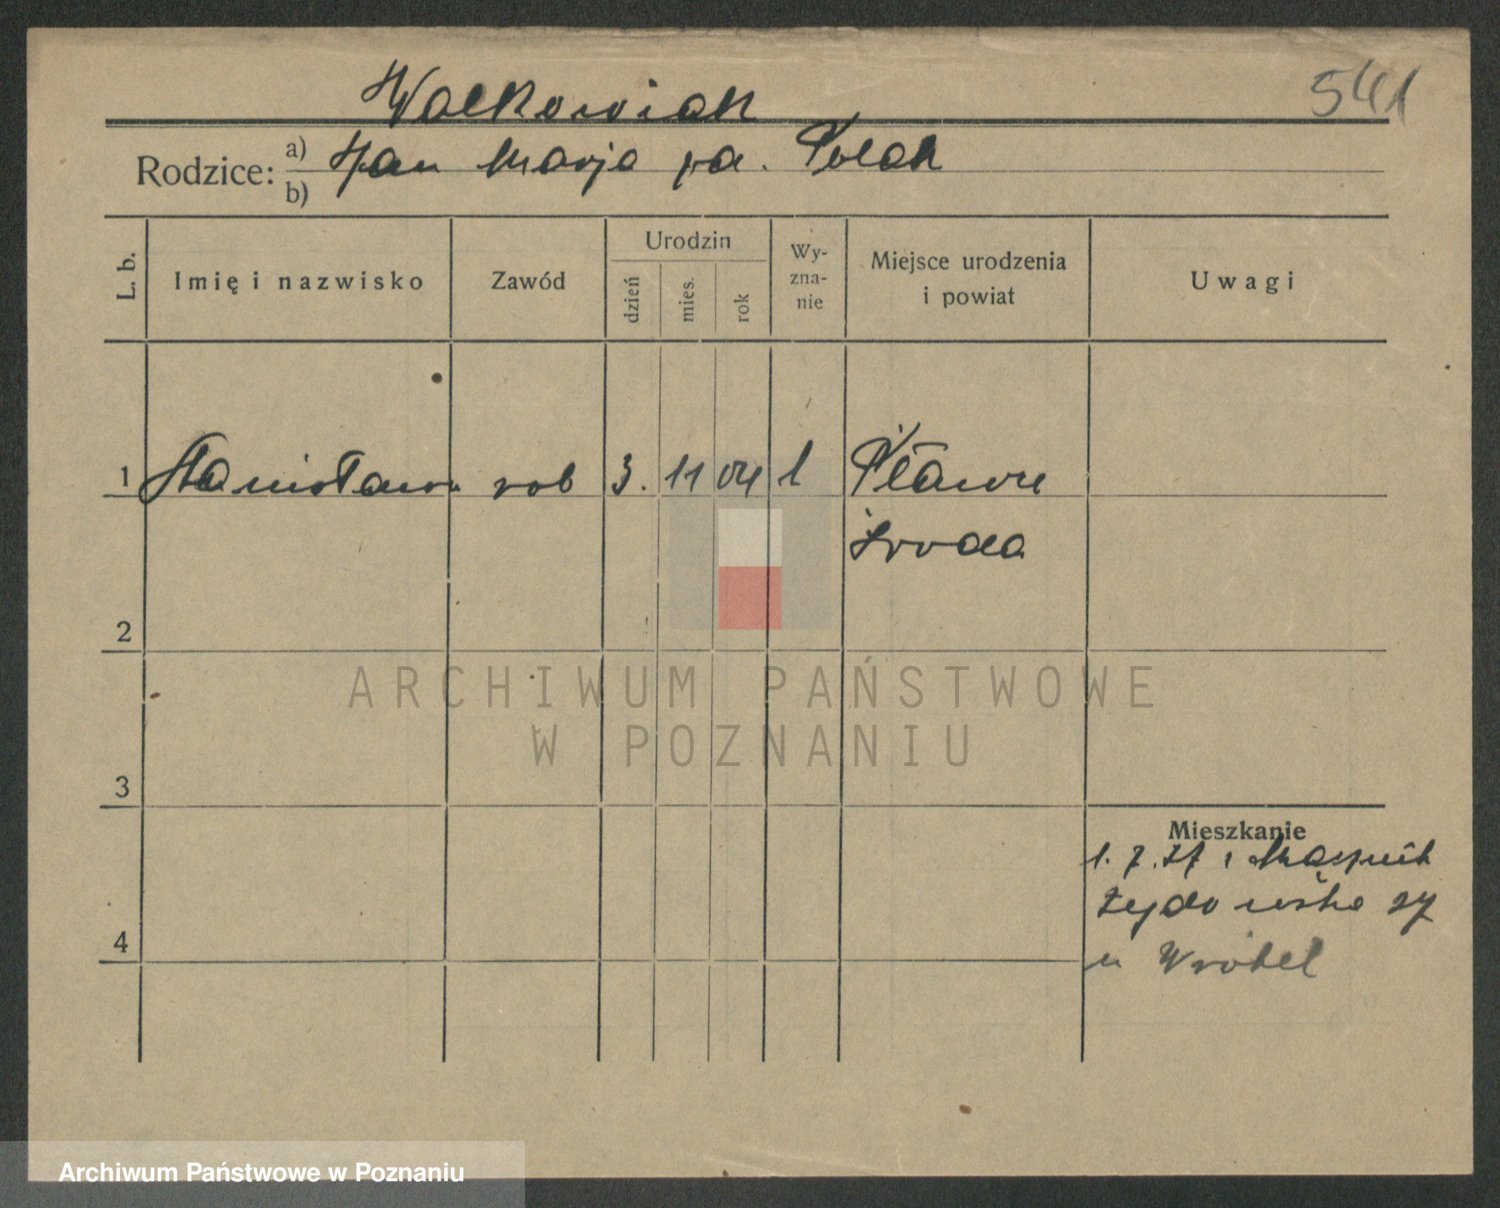 Walkowiak
541
Rodzice: a) Jan Marja pa. Polak
b)
L. b.
Imię i nazwisko
Zawód
Urodzin
dzień
mies.
rok
Wy-
zna-
nie
Miejsce urodzenia
i powiat
Uwagi
1 Stanisława rob 3. 11 04
Środa
2
ARCHIWUM PAŃSTWOWE
W POZNANIU
3
Mieszkanie
1. 7.
4
Żydowska 27
u Wróbel
Archiwum Państwowe w Poznaniu